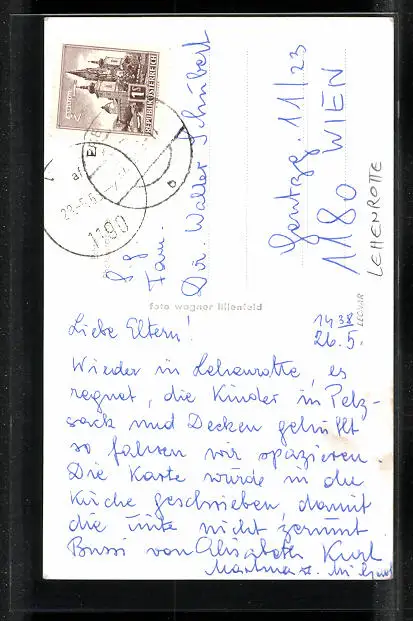 REPUBLIK ÖSTERREICH
1190
S.g.
Fam.
Dir. Walter Schubert
Gentzg. 11/23
1180 WIEN
LEHENROTTE
foto wagner lilienfeld
26.5.
Liebe Eltern!
Wieder in Lehenrotte, es
regnet, die Kinder in Pelz-
sack und Decken gehüllt
so fahren wir spazieren.
Die Karte wurde in der
Küche geschrieben, damit
die Tinte nicht zerrinnt
Bussi von Elisabeth Kurt